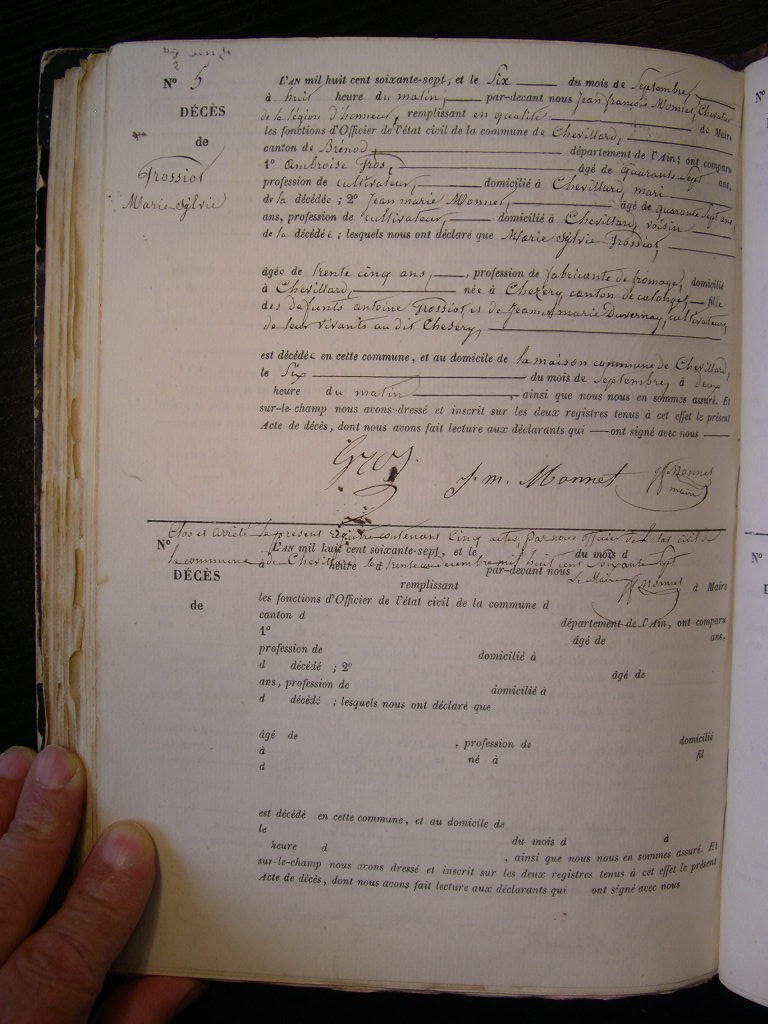 N° 5
DÉCÈS
de
Grossiot
Marie Sylvie
L'AN mil huit cent soixante-sept, et le Six du mois de Septembre,
à huit heure du matin, par-devant nous Jean françois Monnet, Chevalier
de la légion d'honneur, remplissant en qualité de Maire
les fonctions d'Officier de l'état civil de la commune de Chevillard,
canton de Brénod, département de l'Ain; ont comparu
1° Ambroise Gros, âgé de quarante sept ans,
profession de cultivateur, domicilié à Chevillard, mari
de la décédée; 2° Jean marie Monnet, âgé de quarante sept ans,
ans, profession de cultivateur, domicilié à Chevillard, voisin
de la décédée; lesquels nous ont déclaré que Marie Sylvie Grossiot,
âgée de trente cinq ans, profession de fabricante de fromage, domicilié
à Chevillard, née à Chezery canton de colonges, fille
des defunts antoine Grossiot, et de Jeanne marie Duvernay, cultivateurs,
de leur vivants au dit Chesery,
est décédée en cette commune, et au domicile de la maison commune de Chevillard,
le Six du mois de Septembre, à deux
heure du matin, ainsi que nous nous en sommes assuré. Et
sur-le-champ nous avons dressé et inscrit sur les deux registres tenus à cet effet le présent
Acte de décès, dont nous avons fait lecture aux déclarants qui ont signé avec nous
Gros.
J. m. Monnet
Monnet
maire
Clos et arrêté le présent registre contenant Cinq actes, par nous officier de l'etat civil de
la commune de Chevillard le trente un decembre mil huit cent Soixante Sept
Le Maire
Monnet
N°
DÉCÈS
de
L'AN mil huit cent soixante-sept, et le du mois d
à heure d par-devant nous
remplissant d Maire
les fonctions d'Officier de l'état civil de la commune d
canton d département de l'Ain, ont comparu
1° âgé de ans,
profession de domicilié à
d décédé ; 2° âgé de
ans, profession de domicilié à
d décédé ; lesquels nous ont déclaré que
âgé de , profession de domicilié
à né à fil
d
est décédé en cette commune, et au domicile de
le du mois d à
heure d , ainsi que nous nous en sommes assuré. Et
sur-le-champ nous avons dressé et inscrit sur les deux registres tenus à cet effet le présent
Acte de décès, dont nous avons fait lecture aux déclarants qui ont signé avec nous
N°
N°